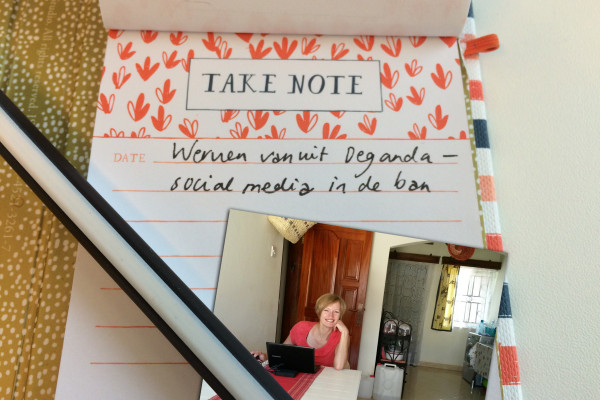 TAKE NOTE
DATE Werven vanuit Oeganda –
social media in de ban